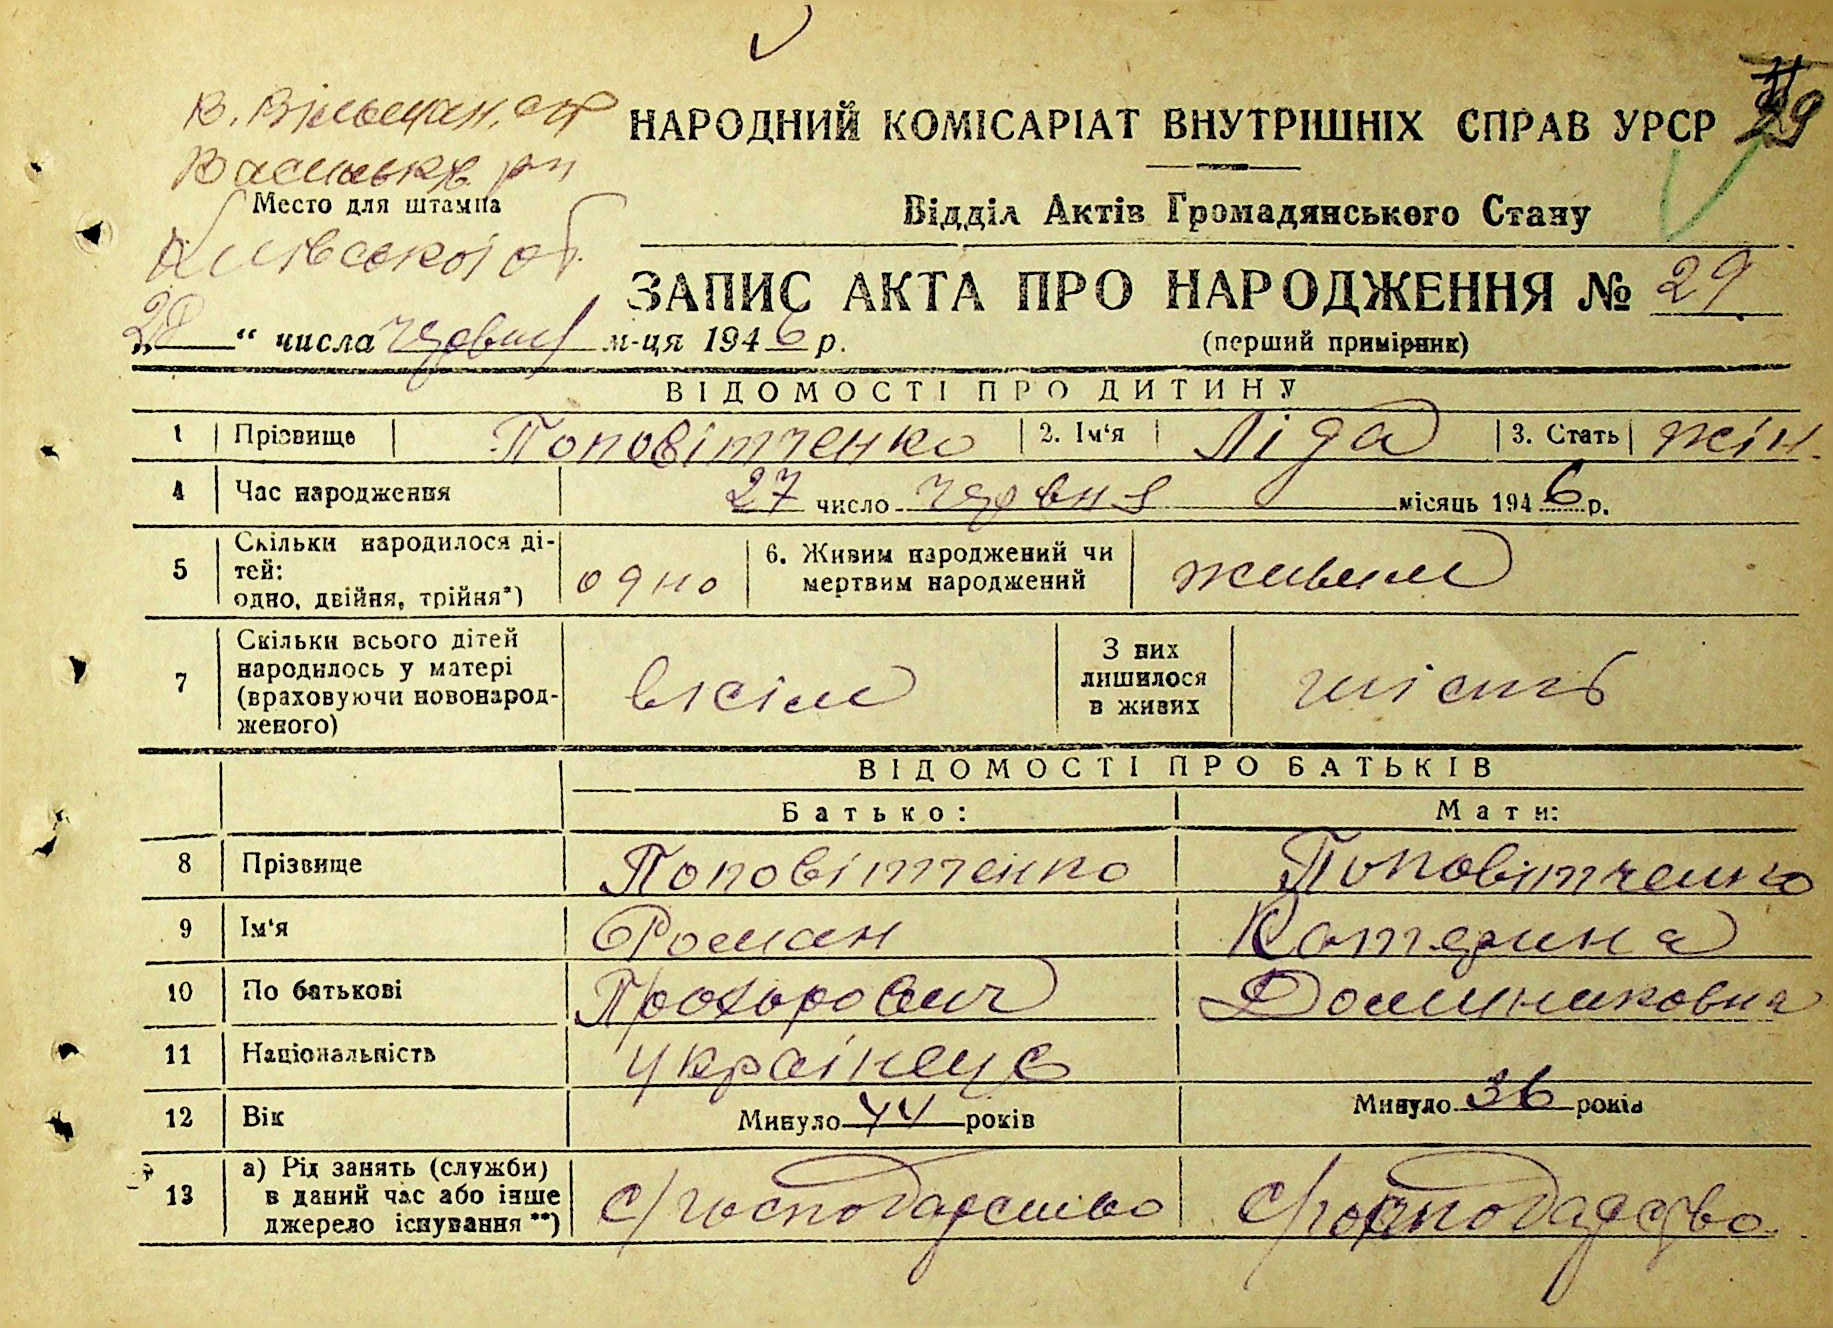 В. Вільшан. с/р
НАРОДНИЙ КОМІСАРІАТ ВНУТРІШНІХ СПРАВ УРСР 29
Васильків. р-н
Место для штампа
Відділ Актів Громадянського Стану
Київської об.
ЗАПИС АКТА ПРО НАРОДЖЕННЯ № 29
„28“ числа червня м-ця 1946 р.
(перший примірник)
ВІДОМОСТІ ПРО ДИТИНУ
1 Прізвище Поповітченко 2. Ім‘я Ліда 3. Стать жін.
4 Час народження 27 число червня місяць 1946 р.
5 Скільки народилося ді-
тей:
одно, двійня, трійня*) одно 6. Живим народжений чи
мертвим народжений живим
7 Скільки всього дітей
народилось у матері
(враховуючи новонарод-
женого) вісім З них
лишилося
в живих шість
ВІДОМОСТІ ПРО БАТЬКІВ
Батько: Мати:
8 Прізвище Поповітченко Поповітченко
9 Ім‘я Роман Катерина
10 По батькові Прохорович Доминиковна
11 Національність українці
12 Вік Минуло 44 років Минуло 36 років
13 а) Рід занять (служби)
в даний час або інше
джерело існування **) с/господарство с/господарство